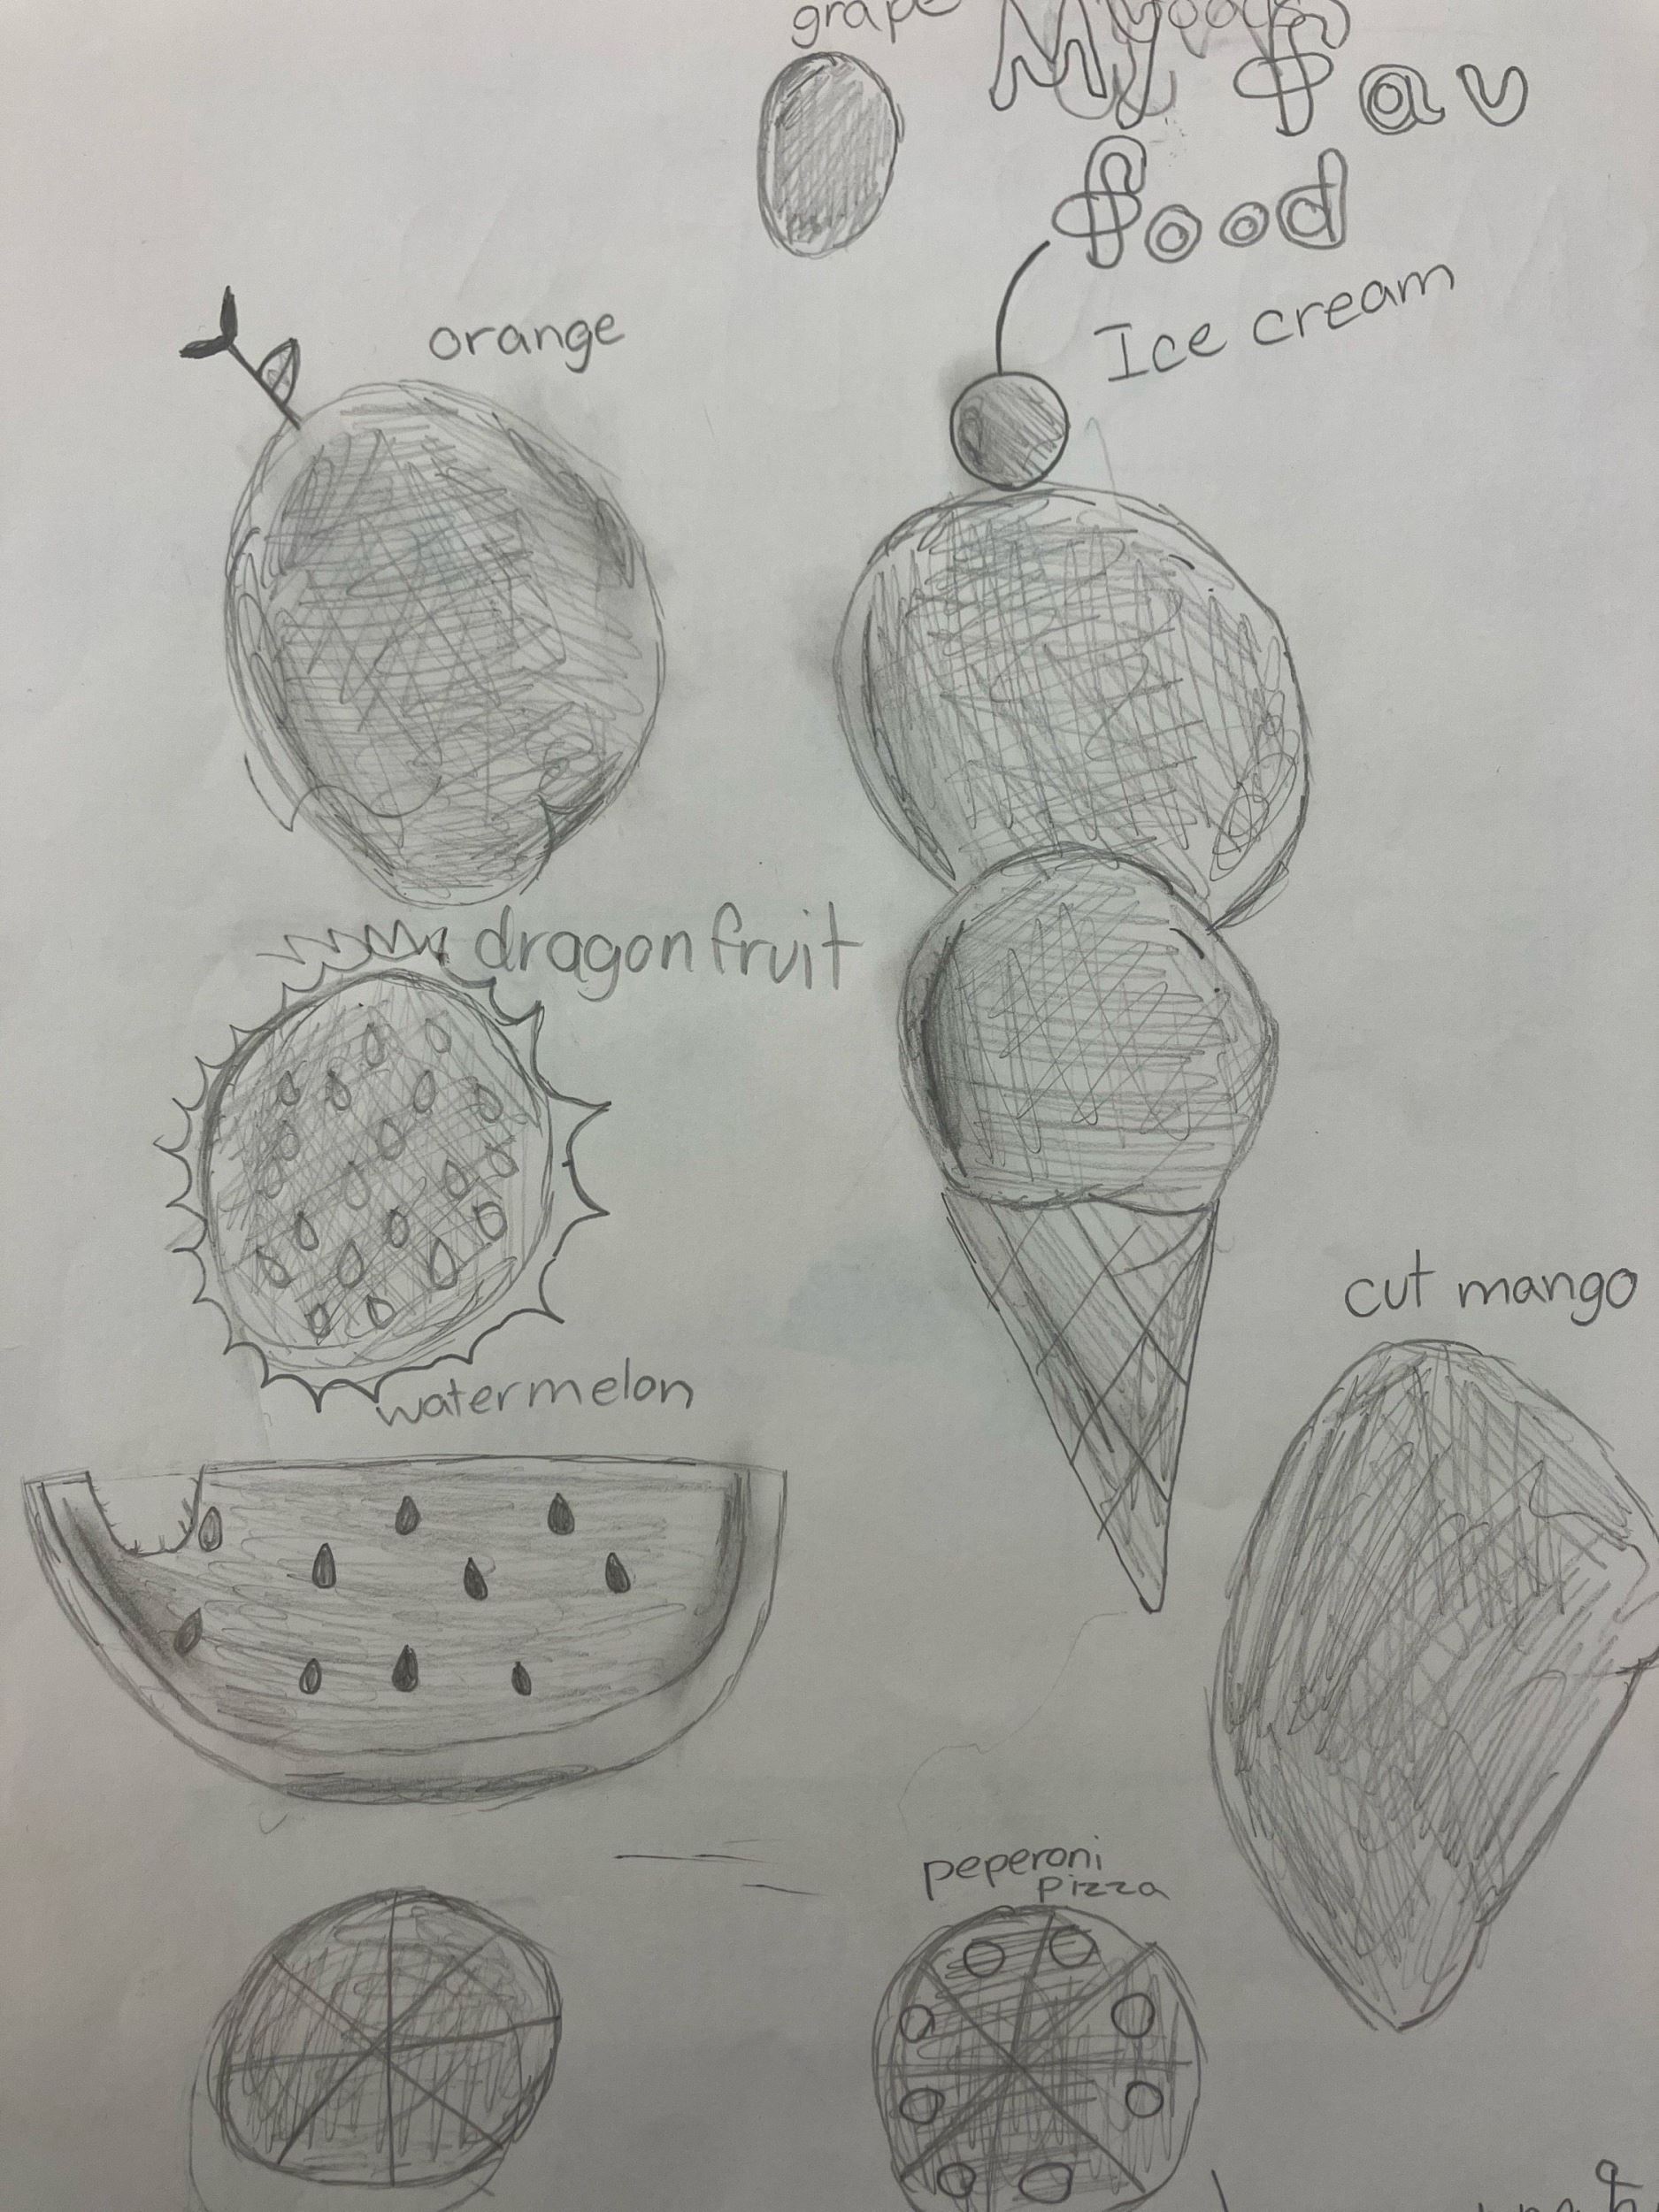 grape
My fav
food
Ice cream
orange
dragonfruit
watermelon
cut mango
peperoni
pizza